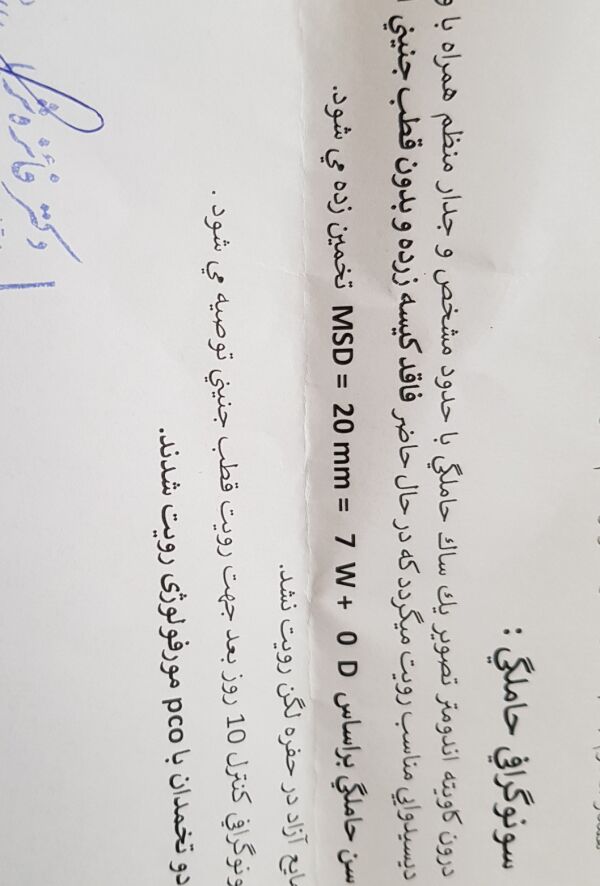 سونوگرافي حاملگي :
درون كاويته اندومتر تصوير يك ساك حاملگي با حدود مشخص و جدار منظم همراه با و
ديسيدوايي مناسب رويت ميگردد كه در حال حاضر فاقد كيسه زرده و بدون قطب جنيني
سن حاملگي براساس MSD = 20 mm = 7 W + 0 D تخمين زده مي شود.
مايع آزاد در حفره لگن رويت نشد.
ونوگرافي كنترل 10 روز بعد جهت رويت قطب جنيني توصيه مي شود .
دو تخمدان با pco مورفولوژی رویت شدند.
دكتر